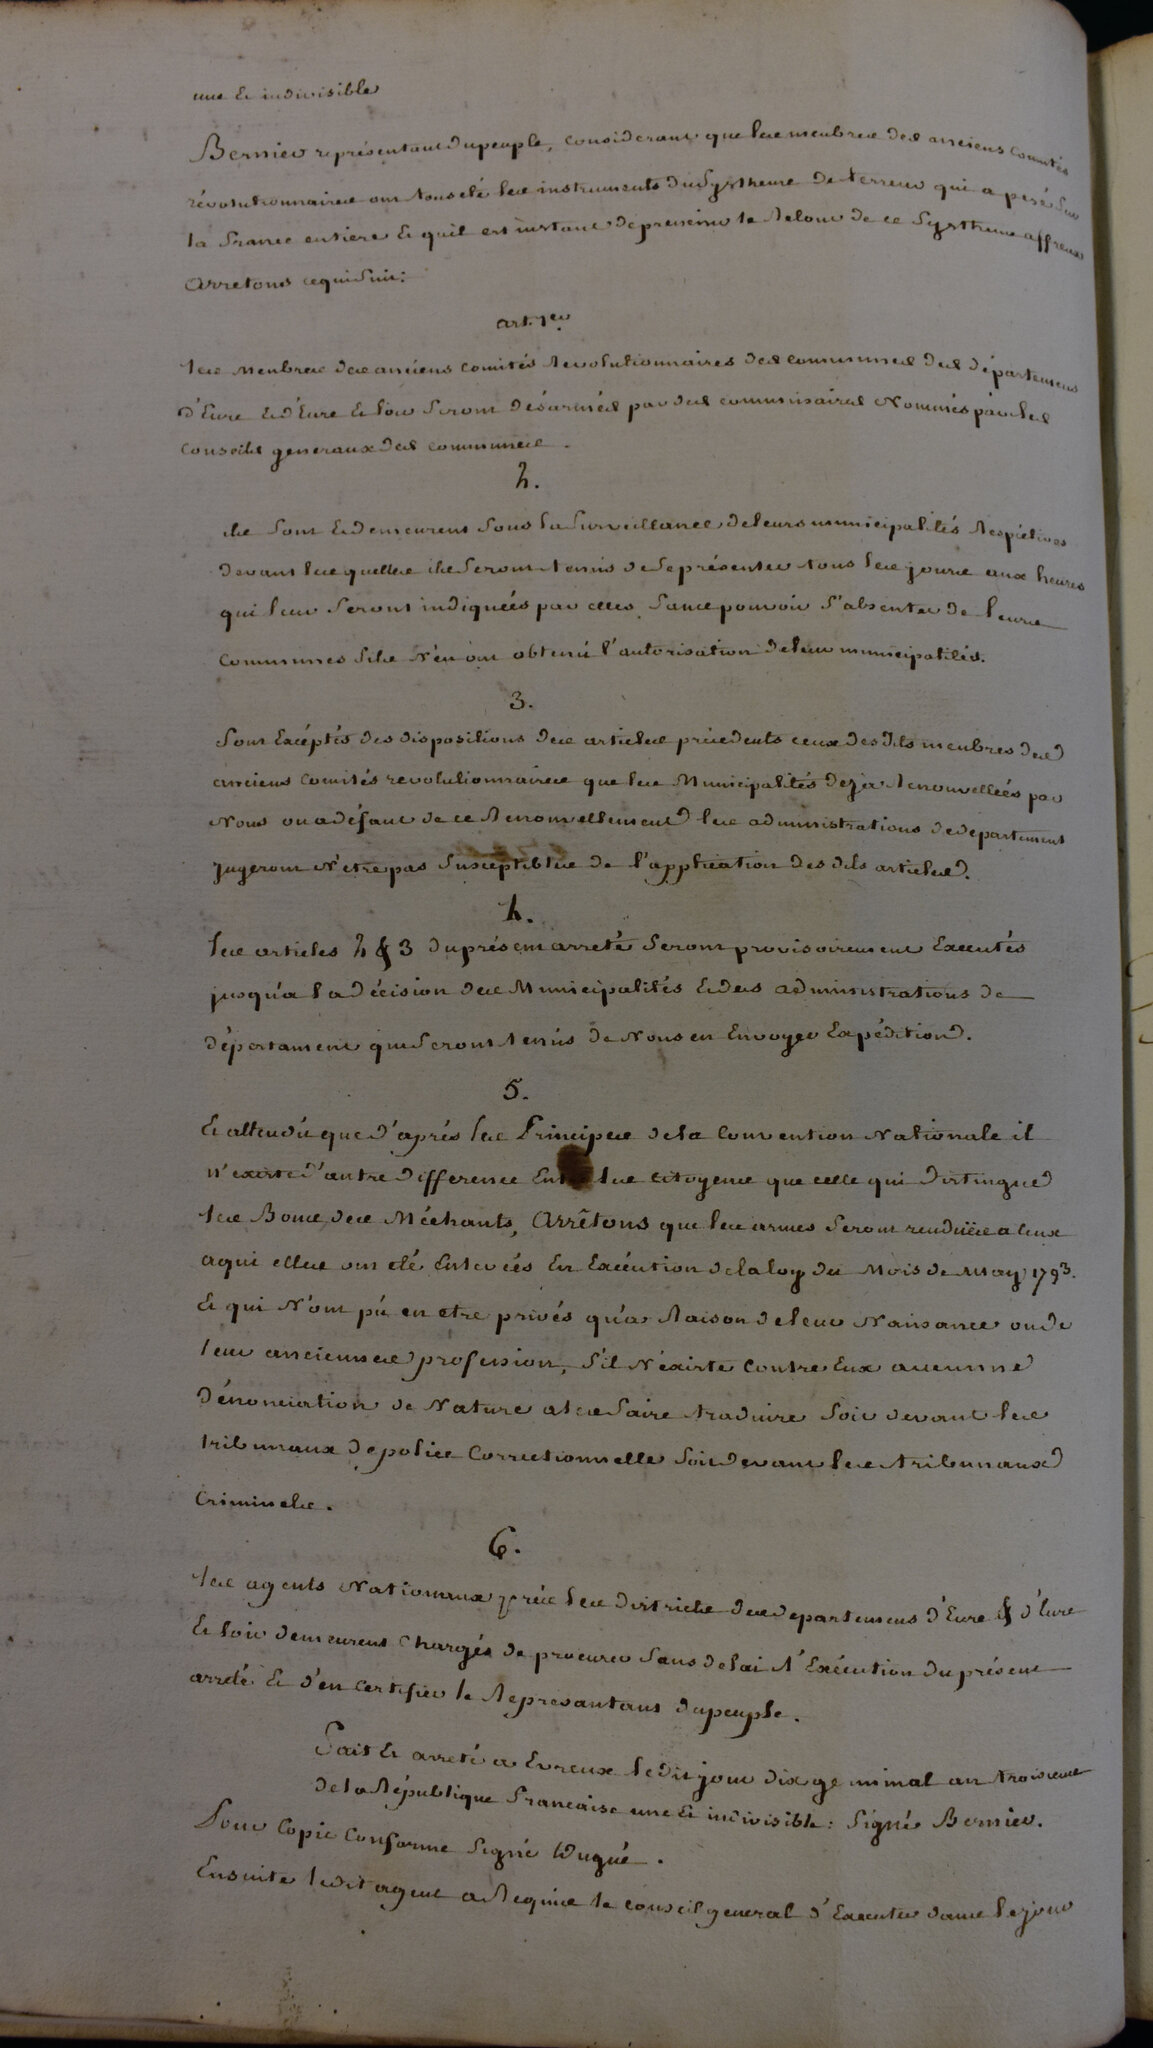 une & indivisible
Bernier représentant du peuple, considerant que les menbres des anciens comités
révolutionnaires ont tous été les instruments du Systheme de terreur qui a pesé Sur
la france entiere & quil est instant de prevenir le Retour de ce Systheme affreux
arretons ce qui Suit:
art. 1er
les menbres des anciens comités Revolutionnaires des communes des départemens
d'Eure & d'Eure & loir Seront désarmés par des commissaires Nommés par les
Conseils generaux des communes.
2.
ils Sont & demeurent Sous la Surveillance de leurs municipalités Respéctives
devant les quelles ils Seront tenus de Se présenter tous les jours aux heures
qui leur Seront indiquées par elles, Sans pouvoir S'absenter de leurs
Communes S'ils N'en ont obtenu l'autorisation de leur municipalités.
3.
Sont Excéptés des dispositions des articles précedents ceux des dits menbres des
anciens comités revolutionnaires que les Municipalités déjà Renouvellées par
Nous ou a défaut de ce Renouvellement les administrations de departement
jugeront N'etre pas Susceptibles de l'application des dits articles.
4.
les articles 2 & 3 du présent arreté Seront provisoirement Executés
jusqu'a la décision des Municipalités & des administrations de
départament qui Seront tenus de Nous en Envoyer Expédition.
5.
& attendu que d'aprés les Principes de la Convention Nationale il
n'existe d'autre difference Entre les citoyens que celle qui distingue
les Bons des Méchants, Arrêtons que les armes Seront rendües a ceux
a qui elles ont été Enlevées En Exécution de la loy du Mois de May 1793.
& qui N'ont pu en etre privés qu'a Raison de leur Naissance ou de
leur anciennes profession, S'il N'éxiste Contre Eux aucunne
dénonciation de Nature a les faire traduire Soit devant les
tribunaux de police Correctionnelle Soit devant les tribunaux
Criminels.
6.
les agents Nationaux prés les districts des departemens d'Eure & d'Eure
& loir demeurent Chargés de procurer Sans delai l'Exécution du présent
arrété & d'en certifier le Represantant du peuple.
Fait & arreté a Evreux le dit jour dix ge minal an troisieme
de la République francaise une & indivisible: Signé Bernier.
Pour Copie Conforme Signé Dugué.
Ensuite ledit agent a Requis le conseil general d'Executer dans le jour